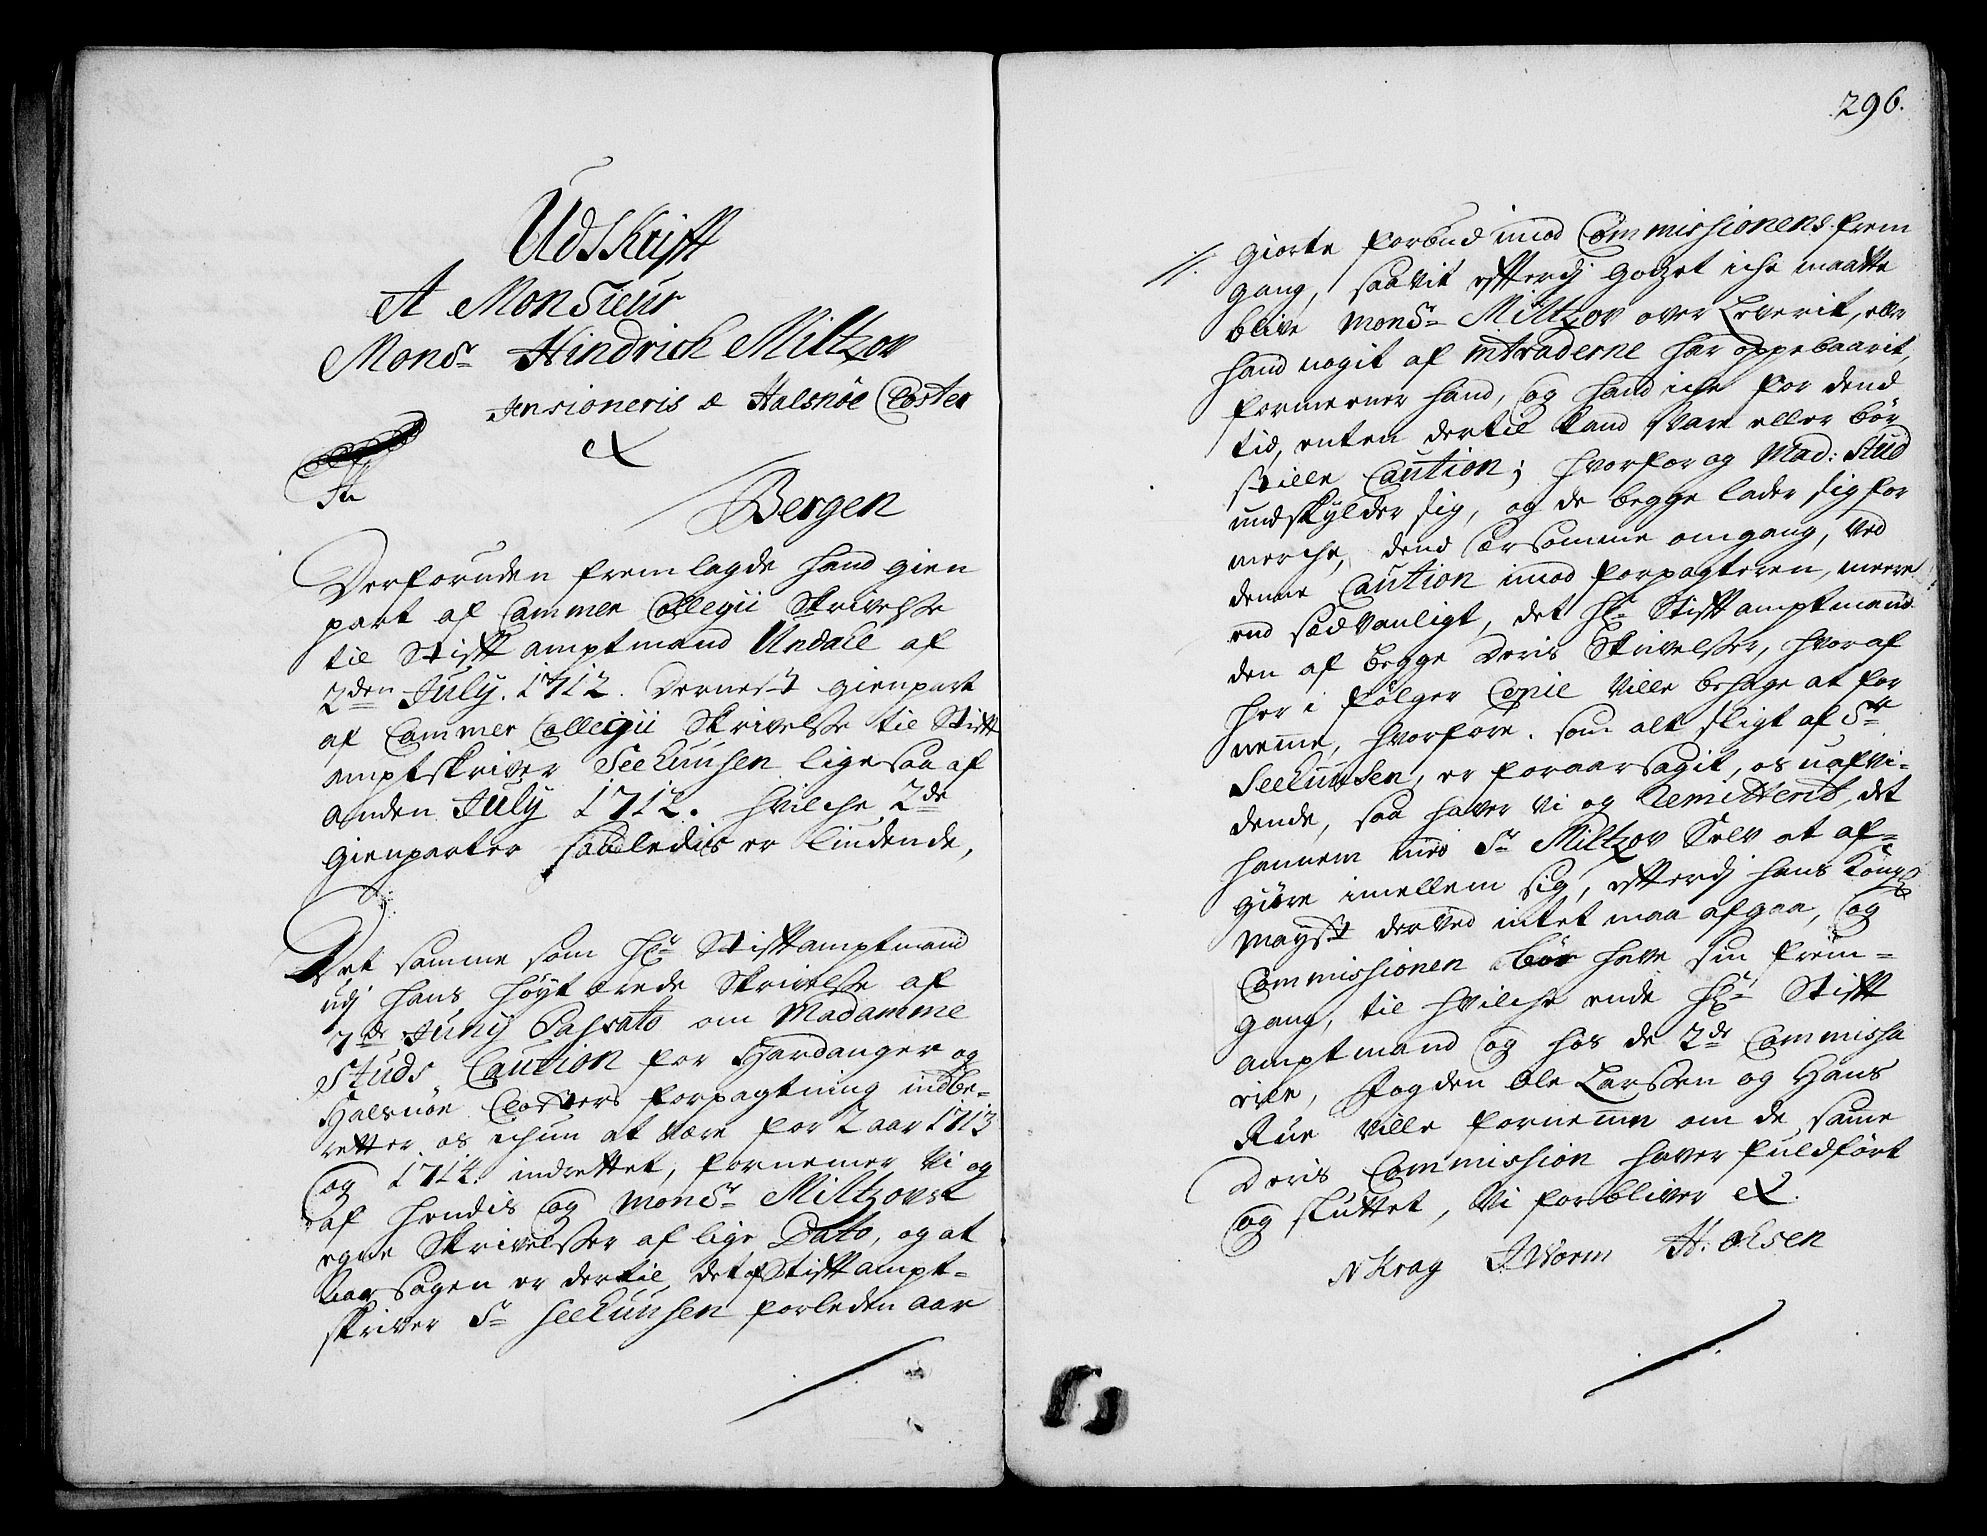 Udskrifft
A Monsieur
Monsr Hindrich Miltzov
Pensioneris a Halsnöe Closter
&
Bergen
Derforuden fremlagde hand gien
part af Cammer Collegii Skrivelse
til Stifft amptmand Undall af
2den July. 1712. Dernest gienpart
af Cammer Collegii Skrivelse til Stifft
amptskriver Seehuusen ligesaa af
anden July 1712. hvilche 2de
gienparter saaledis er liudende,
Det samme som Hr Stifftamptmand
udj hans höyt ærede Skrivelse af
7de Junij Passato om Madamme
Studs Caution for Hardanger og
Halsnöe Closters forpagtning indbe-
retter os ichun at være for 2 aar 1713
og 1714 indrettet, fornemer Vi og
af hendis og Monsr Miltzovs
egne Skrivelser af lige Dato, og at
Aarsagen er dertil, det Stifft ampt-
skriver Sr Seehuusen forleden aar
296.
giorte forbud imod Commissionens frem
gang, saavit efterdj godzet iche maatte
blive Monsr Miltzov over Leverit, eller
hand nogit af intraderne har oppebaarit,
formeener hand, og hand iche for dend
tid, enten dertil kand Vare eller bör
stille Caution; hvorfor og Mad: Stud
undskylder sig, og de begge lader sig for
merche, dend særsomme omgang, ved
denne Caution imod forpagteren, meere
end sædvanligt, det Hr Stifft amptmand
den af begge Deris Skrivelser, hvoraf
her i fölger Copie Ville behage at for
nemme, hvorfore. som alt sligt af Sr
Seehuusen, er foraarsagit, os uafvi-
dende, saa haver Vi og Remitterit, det
hannem med Sr Miltzov Selv at af-
giöre imellem sig, efterdj hans Kongl
Mayst derved intet maa afgaa, og
Commissionen bör have sin frem-
gang, til hvilche ende Hr Stifft
amptmand og hos de 2de Commissa
rier, Fogden Ole Larssen og Hans
Rue Ville fornemme om de samme
Deris Commission haver fuldfört
og sluttet, Vi forbliver &.
N Krag J Worm H: Olsen